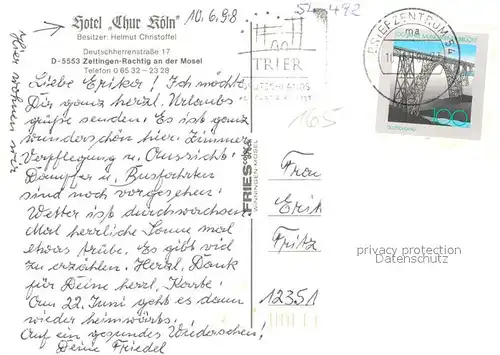 Hotel „Chur Köln"
10.6.98
SL-492
Besitzer: Helmut Christoffel
Deutschherrenstraße 17
D-5553 Zeltingen-Rachtig an der Mosel
Telefon 0 65 32 - 23 28
Hier wohnen wir
Liebe Erika! Ich möchte
Dir ganz herzl. Urlaubs
grüße senden. Es ist ganz
wunderschön hier. Zimmer
Verpflegung u. Aussicht.
Dampfer u. Busfahrten
sind noch vorgesehen.
Wetter ist durchwachsen
Mal herrliche Sonne mal
etwas trübe. Es gibt viel
zu erzählen. Herzl. Dank
für Deine herzl. Karte!
Am 22. Juni geht es dann
wieder heimwärts.
Auf ein gesundes Wiedersehen!
Deine Friedel
FRIES
WINNINGEN-MOSEL
TRIER
165
BRIEFZENTRUM 54
ma
100
Frau
Erik
Fritz
12351
privacy protection
Datenschutz